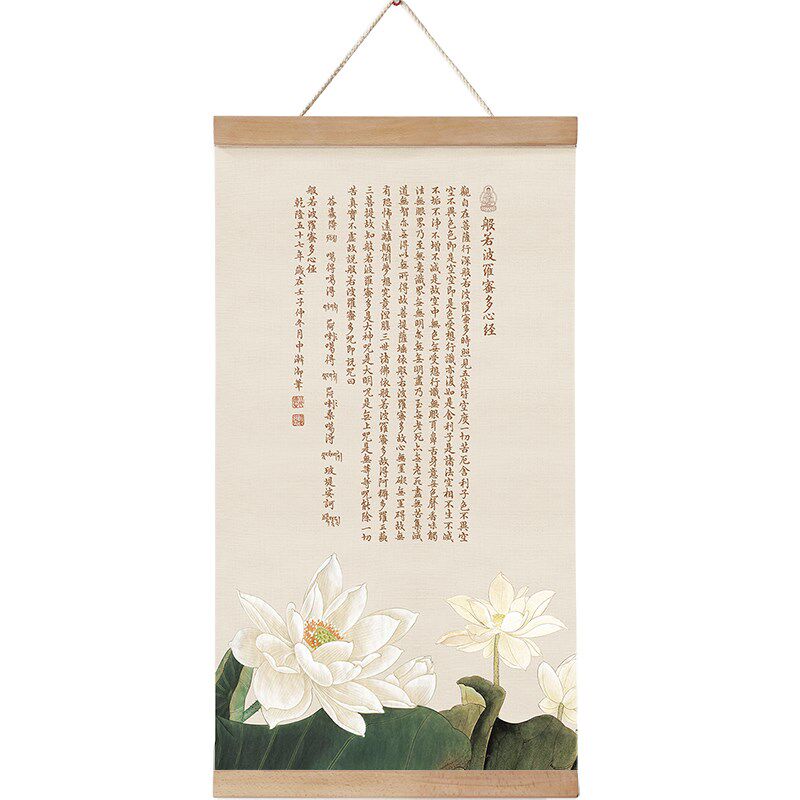 般若波羅蜜多心經
觀自在菩薩行深般若波羅蜜多時照見五蘊皆空度一切苦厄舍利子色不異空
空不異色色即是空空即是色受想行識亦復如是舍利子是諸法空相不生不滅
不垢不淨不增不減是故空中無色無受想行識無眼耳鼻舌身意無色聲香味觸
法無眼界乃至無意識界無無明亦無無明盡乃至無老死亦無老死盡無苦集滅
道無智亦無得以無所得故菩提薩埵依般若波羅蜜多故心無罣礙無罣礙故無
有恐怖遠離顛倒夢想究竟涅槃三世諸佛依般若波羅蜜多故得阿耨多羅三藐
三菩提故知般若波羅蜜多是大神咒是大明咒是無上咒是無等等咒能除一切
苦真實不虛故說般若波羅蜜多咒即說咒曰
噶得噶得 噶得 桑噶得 玻堤娑訶
般若波羅蜜多心經
乾隆五十七年歲在壬子仲冬月中澣御筆